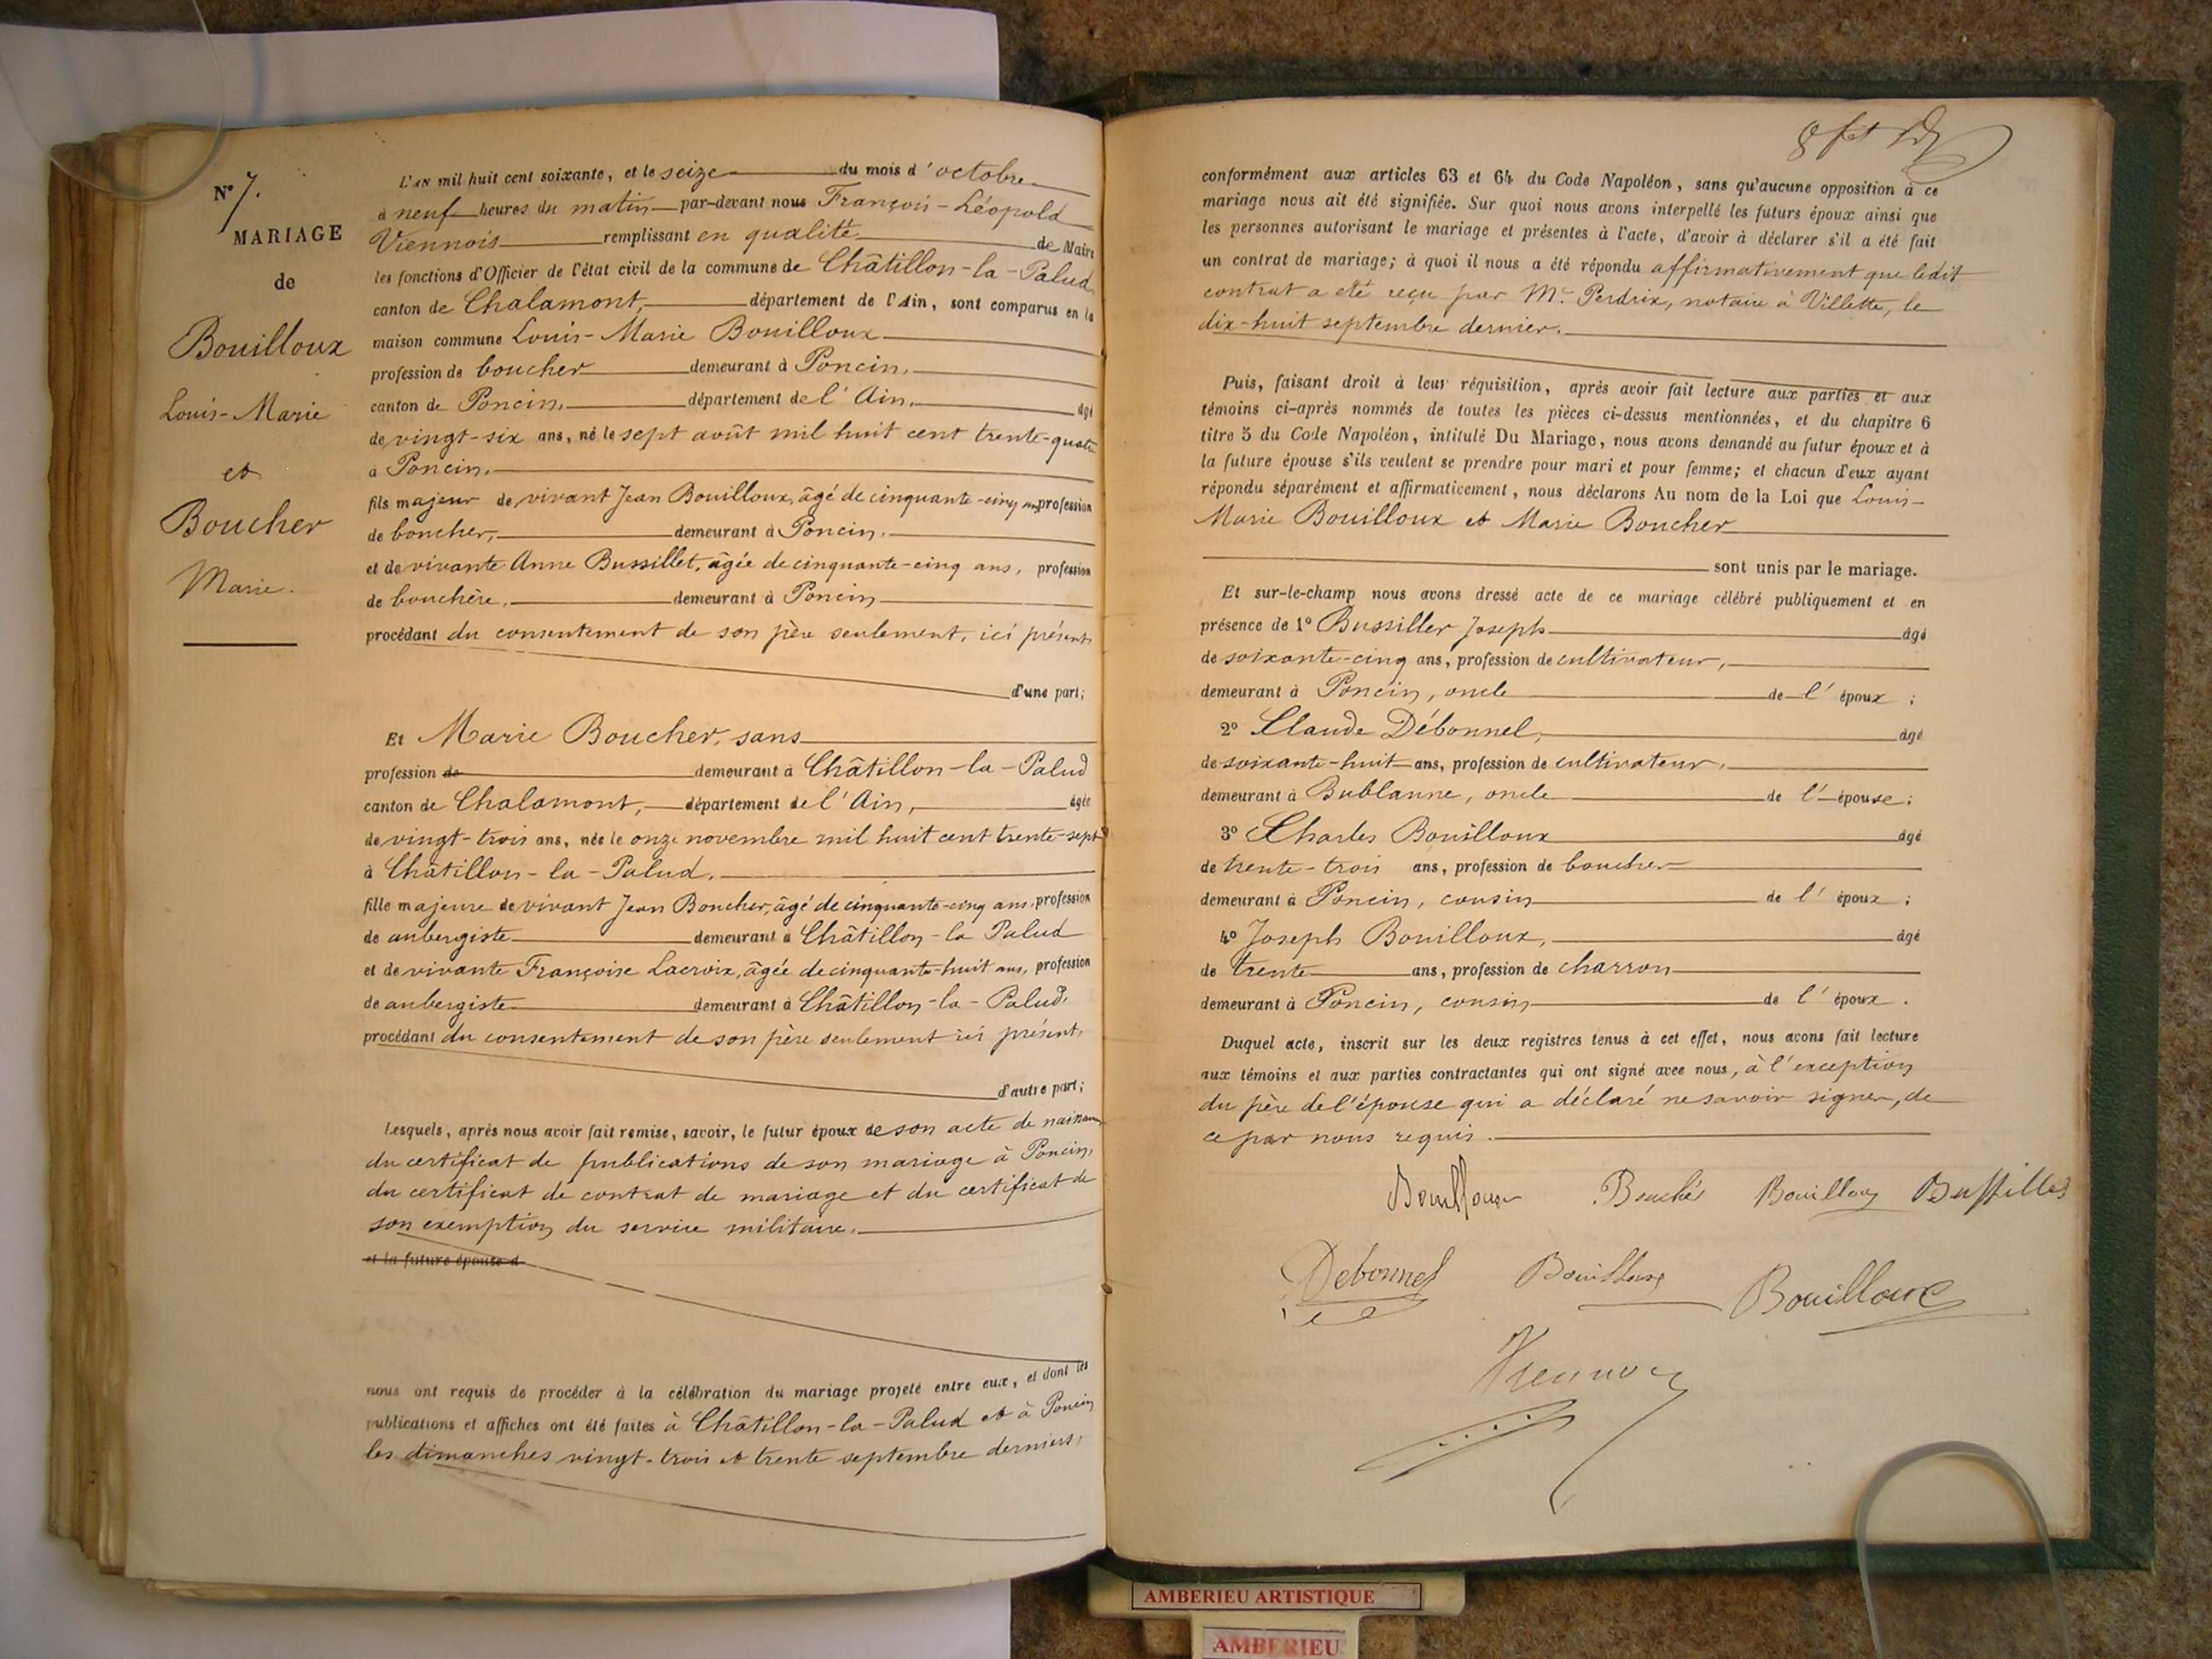 N° 7.
MARIAGE
de
Bouilloux
Louis-Marie
et
Boucher
Marie.
L'AN mil huit cent soixante, et le seize du mois d'octobre
à neuf heures du matin par-devant nous François-Léopold
Viennois remplissant en qualité de Maire
les fonctions d'Officier de l'état civil de la commune de Châtillon-la-Palud,
canton de Chalamont, département de l'Ain, sont comparus en la
maison commune Louis-Marie Bouilloux
profession de boucher demeurant à Poncin,
canton de Poncin, département de l'Ain, âgé
de vingt-six ans, né le sept août mil huit cent trente-quatre
à Poncin,
fils majeur de vivant Jean Bouilloux, âgé de cinquante-cinq ans profession
de boucher, demeurant à Poncin,
et de vivante Anne Bussillet, âgée de cinquante-cinq ans, profession
de bouchère, demeurant à Poncin
procédant du consentement de son père seulement, ici présent,
d'une part;
Et Marie Boucher, sans
profession de demeurant à Châtillon-la-Palud
canton de Chalamont, département de l'Ain, âgée
de vingt-trois ans, née le onze novembre mil huit cent trente-sept
à Châtillon-la-Palud,
fille majeure de vivant Jean Boucher, âgé de cinquante-cinq ans, profession
de aubergiste demeurant à Châtillon-la Palud
et de vivante Françoise Lacroix, âgée de cinquante-huit ans, profession
de aubergiste demeurant à Châtillon-la-Palud,
procédant du consentement de son père seulement ici présent,
d'autre part;
Lesquels, après nous avoir fait remise, savoir, le futur époux de son acte de naissance
du certificat de publications de son mariage à Poncin,
du certificat de contrat de mariage et du certificat de
son exemption du service militaire,
et la future épouse d
nous ont requis de procéder à la célébration du mariage projeté entre eux, et dont les
publications et affiches ont été faites à Châtillon-la-Palud et à Poncin
les dimanches vingt-trois et trente septembre derniers,
conformément aux articles 63 et 64 du Code Napoléon, sans qu'aucune opposition à ce
mariage nous ait été signifiée. Sur quoi nous avons interpellé les futurs époux ainsi que
les personnes autorisant le mariage et présentes à l'acte, d'avoir à déclarer s'il a été fait
un contrat de mariage; à quoi il nous a été répondu affirmativement que ledit
contrat a été reçu par Me. Perdrix, notaire à Villette, le
dix-huit septembre dernier.
Puis, faisant droit à leur réquisition, après avoir fait lecture aux parties et aux
témoins ci-après nommés de toutes les pièces ci-dessus mentionnées, et du chapitre 6
titre 5 du Code Napoléon, intitulé Du Mariage, nous avons demandé au futur époux et à
la future épouse s'ils veulent se prendre pour mari et pour femme; et chacun d'eux ayant
répondu séparément et affirmativement, nous déclarons Au nom de la Loi que Louis-
Marie Bouilloux et Marie Boucher
sont unis par le mariage.
Et sur-le-champ nous avons dressé acte de ce mariage célébré publiquement et en
présence de 1° Bussiller Joseph âgé
de soixante-cinq ans, profession de cultivateur,
demeurant à Poncin, oncle de l'époux;
2° Claude Débonnel, âgé
de soixante-huit ans, profession de cultivateur,
demeurant à Bublanne, oncle de l'épouse;
3° Charles Bouilloux âgé
de trente-trois ans, profession de boucher
demeurant à Poncin, cousin de l'époux;
4° Joseph Bouilloux, âgé
de trente ans, profession de charron
demeurant à Poncin, cousin de l'époux.
Duquel acte, inscrit sur les deux registres tenus à cet effet, nous avons fait lecture
aux témoins et aux parties contractantes qui ont signé avec nous, à l'exception
du père de l'épouse qui a déclaré ne savoir signer, de
ce par nous requis.
Bouilloux Bouché Bouilloux Bussilles
Debonnel Bouilloux Bouilloux
Viennois
AMBERIEU ARTISTIQUE
AMBERIEU